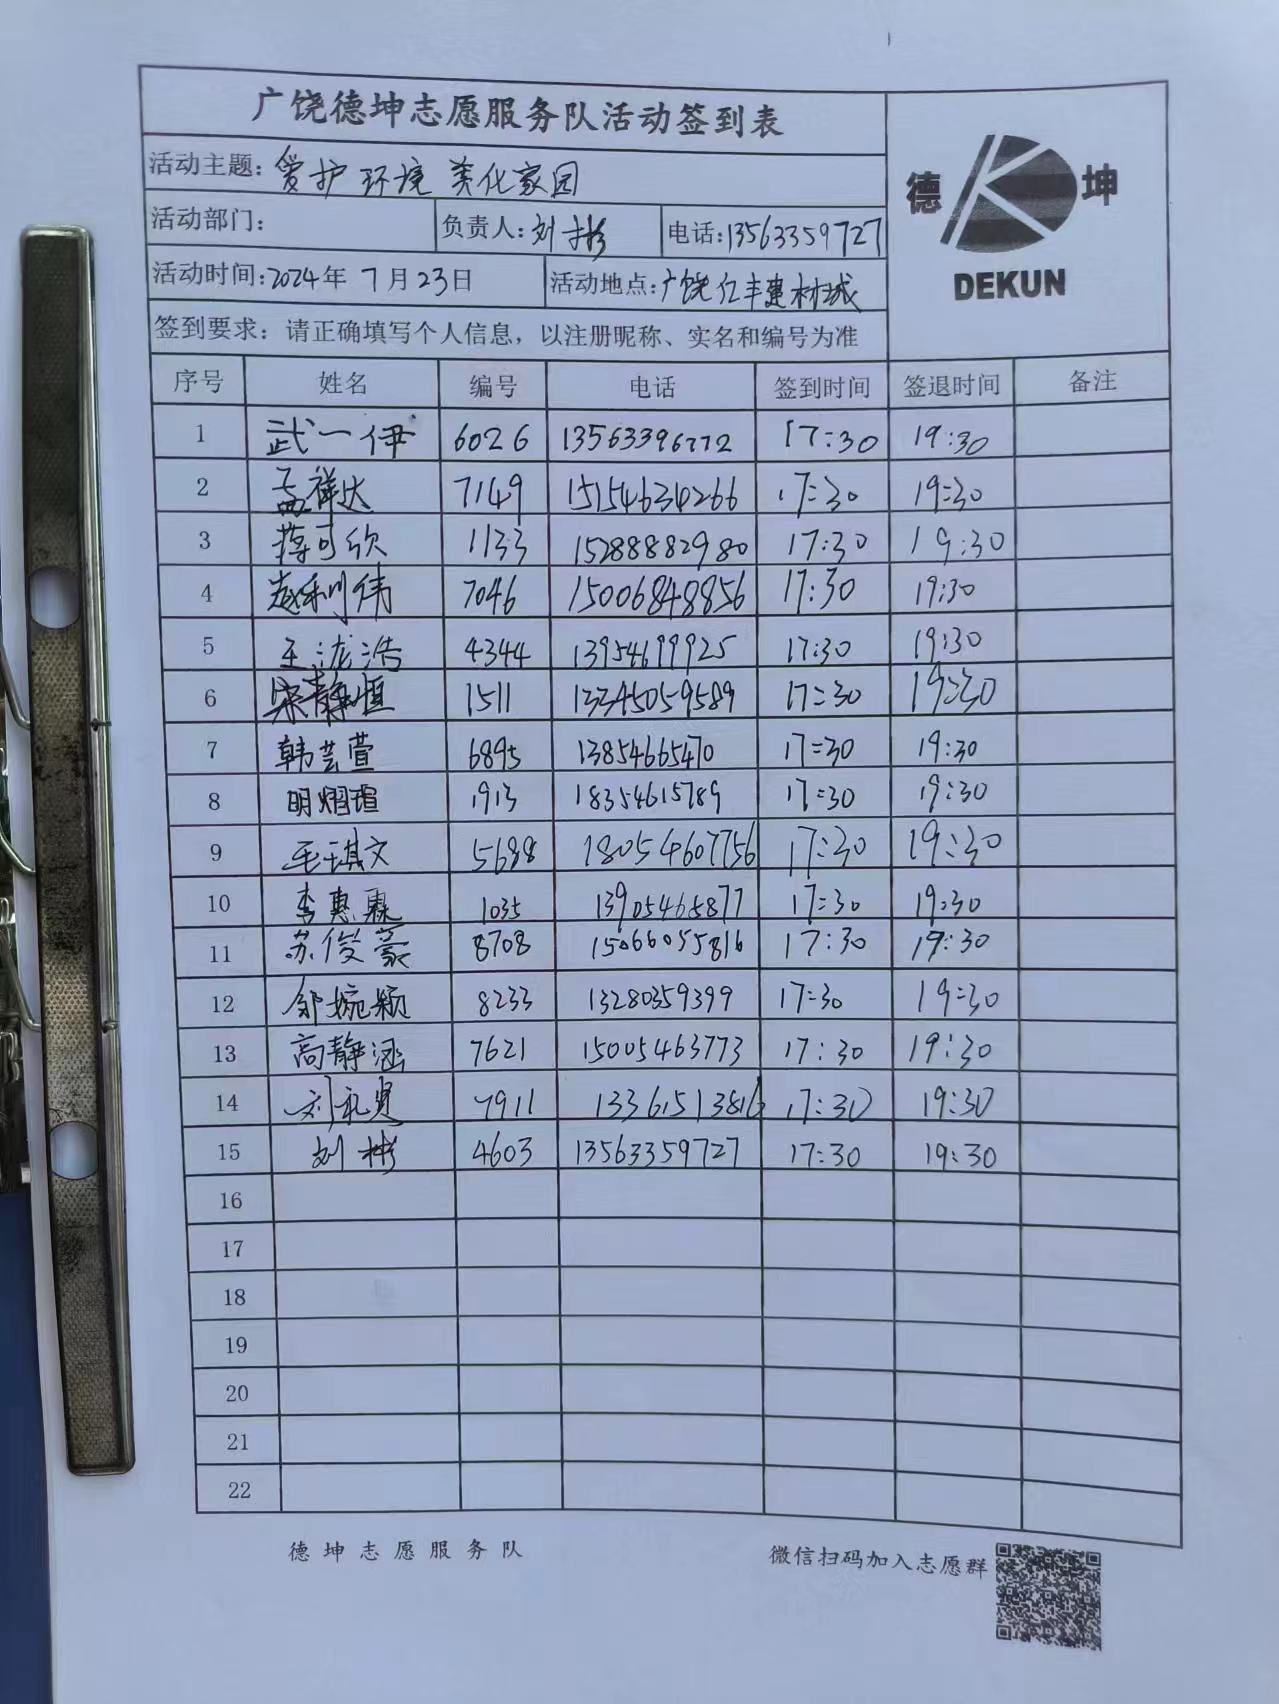 广饶德坤志愿服务队活动签到表
德 坤
DEKUN
活动主题：爱护环境 美化家园
活动部门： 负责人：刘彬 电话：13563359727
活动时间：2024年 7月23日 活动地点：广饶亿丰建材城
签到要求：请正确填写个人信息，以注册昵称、实名和编号为准
序号 姓名 编号 电话 签到时间 签退时间 备注
1 武一伊 6026 13563396772 17:30 19:30
2 孟祥达 7149 15154634266 17:30 19:30
3 蒋可欣 1133 15288882980 17:30 19:30
4 赵利伟 7046 15006848856 17:30 19:30
5 王泷浩 4344 13954699925 17:30 19:30
6 宋静恒 1511 13345059589 17:30 19:30
7 韩芸萱 6895 13854665470 17:30 19:30
8 明熠瑄 1913 18354615789 17:30 19:30
9 毛琪文 5688 18054607756 17:30 19:30
10 李惠霖 1035 13905465877 17:30 19:30
11 苏俊豪 8708 15066055816 17:30 19:30
12 邹婉颖 8233 13280359399 17:30 19:30
13 高静涵 7621 15005463773 17:30 19:30
14 刘礼贤 7911 13361513816 17:30 19:30
15 刘彬 4603 13563359727 17:30 19:30
16
17
18
19
20
21
22
德坤志愿服务队 微信扫码加入志愿群